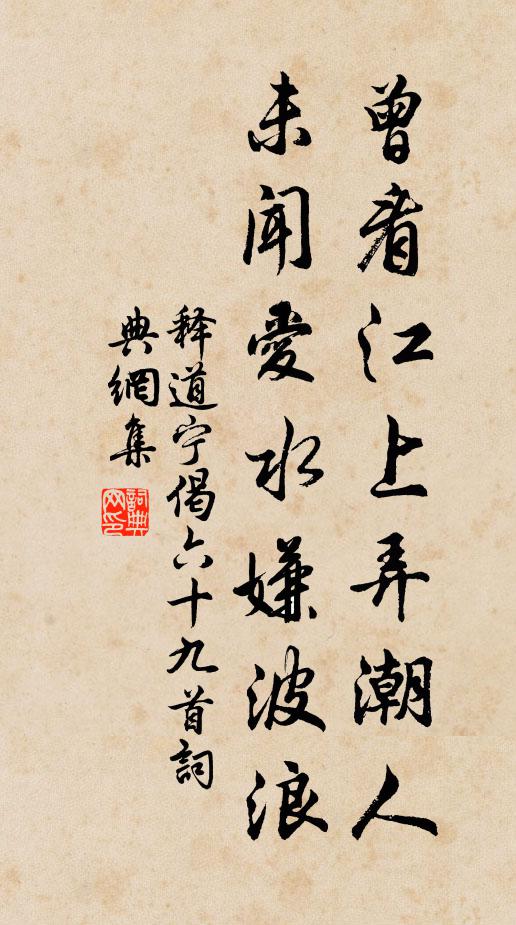 曾看江上弄潮人
未闻愛水嫌波浪
释道宁偈六十九首詞
典網集
詞典网印